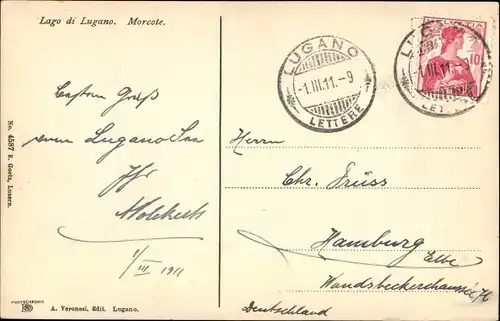 Lago di Lugano. Morcote.
HELVETIA
10
LUGANO
1.III.11.-9
LETTERE
LUGANO
1.III.11.-9
LETTERE
Besten Gruß
vom Lugano See
Ihr
1/III 1911
Herrn
Chr. Früss
Hamburg Elbe
Wandsbeckerchaussee
Deutschland
No. 4587 E. Goetz, Luzern.
PHOTOCHROMIE
A. Veronesi, Edit. Lugano.